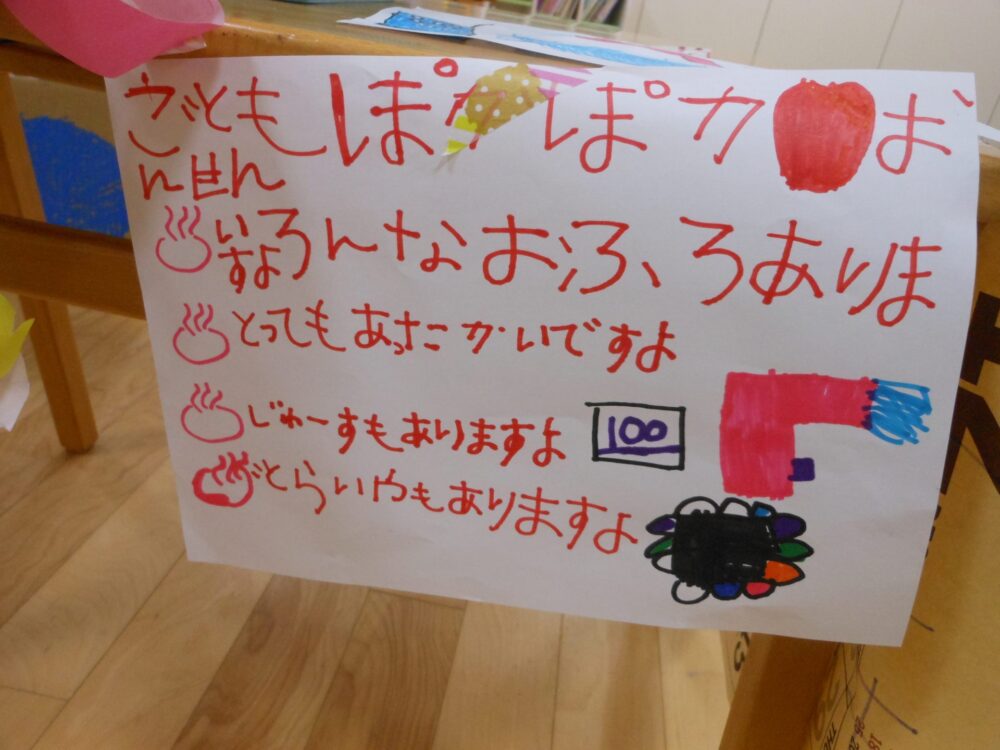 こどもぽかぽかお
んせん
いろんなおふろありま
すよ
とってもあったかいですよ
じゅーすもありますよ 100
どらいやもありますよ